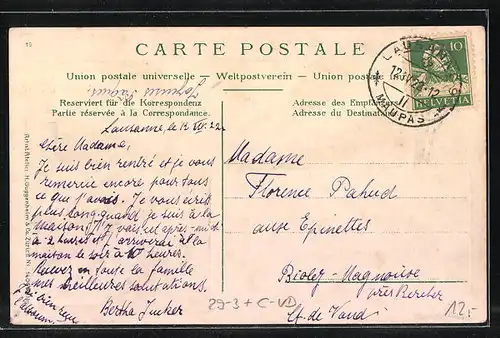 15
CARTE POSTALE
Union postale universelle – Weltpostverein – Union postale
Reserviert für die Korrespondenz
Partie réservée à la Correspondance.
Adresse des Empfängers
Adresse du Destinataire
10
HELVETIA
MAUPAS
Lausanne, le 12.
Chère Madame,
Je suis bien rentré et je vous
remercie encore pour tous
ce que j'avais. Je vous écris
plus long quand je suis à la
maison. Je vais cet après-midi
à 2 heures et j'arriverai à la
maison le soir à heures.
Recevez en toute la famille
mes meilleures salutations.
Bertha Junker
Madame
Florence Pahud
aux Epinettes
Bioley-Magnoux
près Bercher
Ct. de Vaud
27-3 + C-VD
12.-